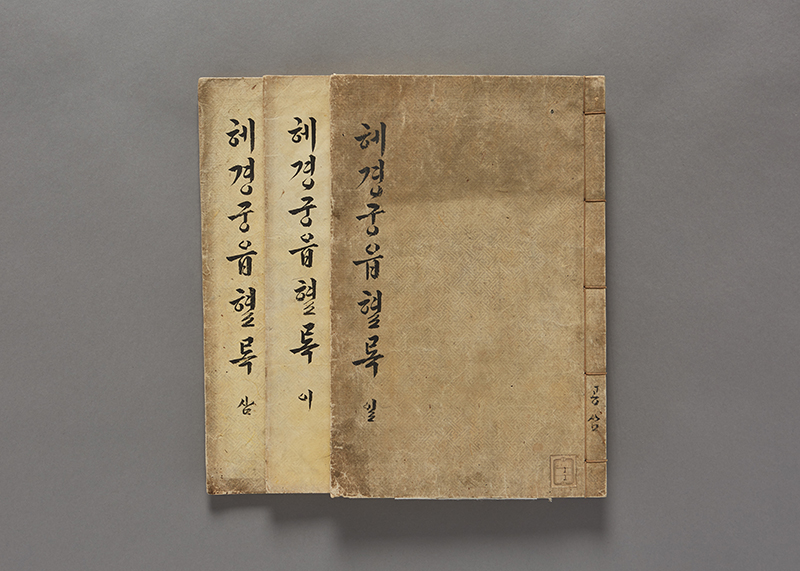 혜경궁읍혈록 삼
혜경궁읍혈록 이
혜경궁읍혈록 일
공삼